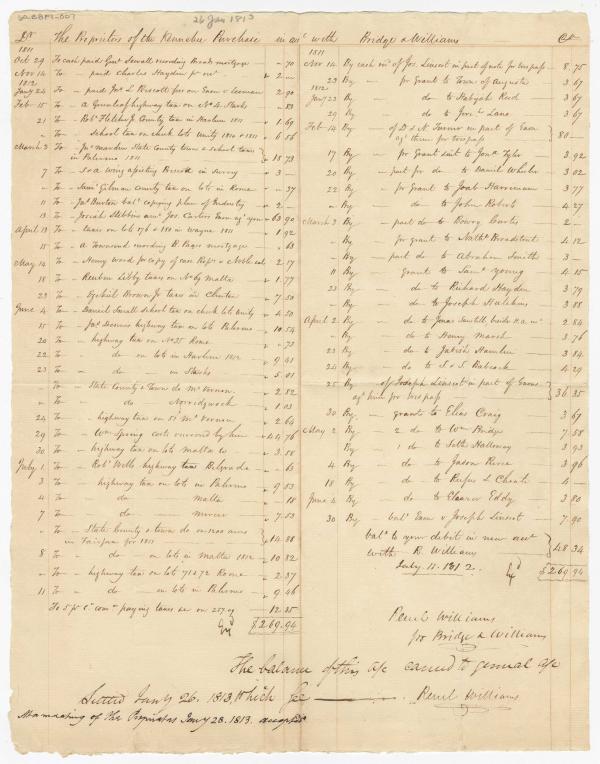 26 Jan 1813
Dr The Proprietors of the Kennebec Purchase in acc with Bridge & Williams Cr
1811
Oct 29 To cash paid Saml Sewall recording Brooks mortgage " 70
Nov 14 To - paid Charles Hayden pr rect " 2 -
1812
Jany 24 To - paid Jos. L. 2.90
Feb 15 To - a Greenleaf highway tax on No 4. Starks " 83
21 To - Robt Fletcher Jr County tax in Harlem 1811 " 1.69
" To - school tax on check lots Unity 1810 & 1811 " 6.56
March 3 To - Jas Marden State County town & school taxes
in Palermo 1811 " 15 73
7 To - " 3 -
" To - Saml Gilman County tax on lots in Rome " 37
11 To - Jas Burton bal copying plan of " 2 -
13 To - Josiah Stebbins 63.90
April 13 To - taxes on lots 176 & 180 in Wayne 1811 " 1.92
15 To - a Townsend recording B. Page's mortgage " .63
May 14 To - Henry Ward for copy of case v Noble & al " 2.17
18 To - Reuben Libby taxes on No 69 Malta " 1.77
23 To - Ezekiel Brown Jr taxes in Clinton " 7.50
June 4 To - Daniel Small school tax on check lots Unity " 4.50
15 To - Jas Dennis highway tax on lots Palermo " 10.54
20 To - highway tax on No 35 Rome " .73
22 To - do - on lots in Harlem 1812 " 9 41
23 To - do - do - in Starks " 5.01
" To - State County & Town do Mt Vernon " 2.82
" To - do Norridgwock " 1.03
24 To - highway tax on 51 Mt Vernon " 2.64
29 To - Wm Spring costs recovered by him " 44.76
30 To - highway tax on lots Malta &c " 3.58
July 1 To - Robt Wells highway taxes Belgrade " 65
3 To - highway tax on lots in Palermo " 9 53
4 To - do - Malta " 18
7 To - do - Mercer " 7.53
" To - State County & town do on 1200 acres
in Fairfax for 1811 " 14.88
8 To - do - on lots in Malta 1812 " 10 82
" To - highway tax on lot 71 & 72 Rome " 2.37
11 To - do - on lots in Palermo " 9 46
To 5 pr Ct comn paying taxes &c on 257.09 12 85
$269.94
1811
Nov 14 By cash in of Jos. Linscot in part of note for trespass 8.75
23 By - for grant to Town of Augusta 3 67
1812
Jany 23 By - do to Kezijah Reed 3 67
29 By - do - for Jere Lane 3.67
Feb 14 By - of D & N Turner in part of Exon
agt them for trespass 80 -
17 By - for grant sent to Jona Tyler 3.92
20 By - part for do - to Daniel Wheeler 3 02
22 By - for grant to Joab Harriman 3.77
" By - do - to John Roberts 4.27
March 3 By - part do to Bowry Curtis 2 -
" By - for grant to Nathl Broadstreet 4.12
" By - part do to Abraham Smith 3 -
11 By - grant to Saml Young 4.15
23 By - do - to Richard Hayden 3.79
" By - do - to Joseph Hutchins 3.88
April 2 By - do - to Jonas Sawtell 2.84
" By - do - to Henry March 3.76
23 By - do - to Jabish Hamlin 3 84
24 By - do - to J. & J. Babcock 4.29
25 By - of Joseph Linscot in part of Exons
agt him for trespass 36 35
30 By - grant to Elias Craig 3.67
May 2 By - 2 do - to Wm Bridge 7.58
" By - 1 do - to Seth Holloway 3.93
4 By - do - to Jason Pierce 3.96
18 By - do - to Rufus L Choate 4 -
June 4 By - do - to Eleazer Eddy 3.80
30 By - bal Exon v Joseph Linscot 7.90
bal to your debit in new acct
with R. Williams 48 34
July 11. 1812. $269.94
Reuel Williams
for Bridge & Williams
The balance of this a/c carried to general a/c
Settled Jany 26. 1813, Which see Reuel Williams
At a meeting of the Proprietors Jany 28. 1813. accepted